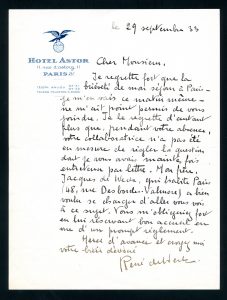 le 29 septembre 33
HOTEL ASTOR
11 rue d'astorg
PARIS 8e
Cher Monsieur,
Je regrette fort que la
brièveté de mon séjour à Paris –
je m'en vais ce matin même –
ne m'ait pas permis de vous
joindre. Je le regrette d'autant
plus que, pendant votre absence,
votre collaboratrice n'a pas été
en mesure de régler la question
dont je vous avais maintes fois
entretenu par lettre. Mon père,
Jacques de Weck, qui habite Paris
(48, rue Desbordes-Valmore) a bien
voulu se charger d'aller vous voir
à ce sujet. Vous m'obligeriez fort
en lui réservant bon accueil et
me d'un prompt règlement.
Merci d'avance et croyez moi
votre bien dévoué
René de Weck